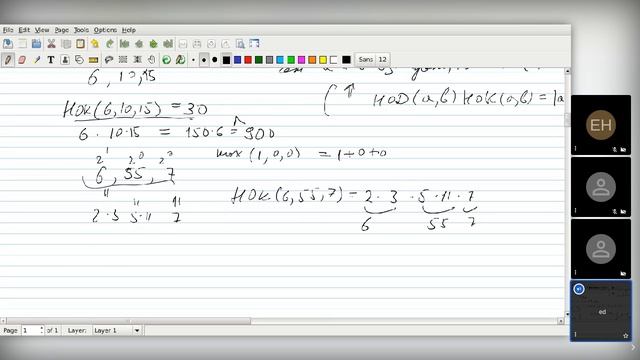 File Edit View Page Tools Options Help
Sans 12
6, 10, 15
НОК(6,10,15) = 30
НОД(a,b) НОК(a,b) =
6 · 10 · 15 = 150 · 6 = 900
max (1, 0, 0) = 1+0+0
2¹ 2⁰ 2⁰
6, 55, 7
НОК(6, 55, 7) = 2 · 3 · 5 · 11 · 7
2 · 3 5 · 11 7
6 55 7
Page 1 of 1 Layer: Layer 1
EH
ed